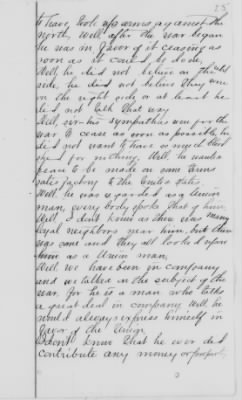 25
to have took up arms against the
north, Well after the war began
he was in favor of it ceasing as
soon as it could be done,
Well, he did not believe on the old
side, he did not believe they were
on the right side or at least he
did not talk that way
Well, sir his sympathies were for the
war to cease as soon as possible, he
did not want to have so much blood
shed for nothing. Well, he wanted
peace to be made on some terms
satisfactory to the United States.
Well he was regarded as a Union
man, every body spoke that of him.
Well I dont know as there was many
loyal neighbors near him, but there
was some and they all looked upon
him as a Union man,
Well we have been in company
and we talked on the subject of the
war. for he is a man who talks
a great deal in company Well, he
would always express himself in
favor of the Union
I dont know that he ever did
contribute any money or property